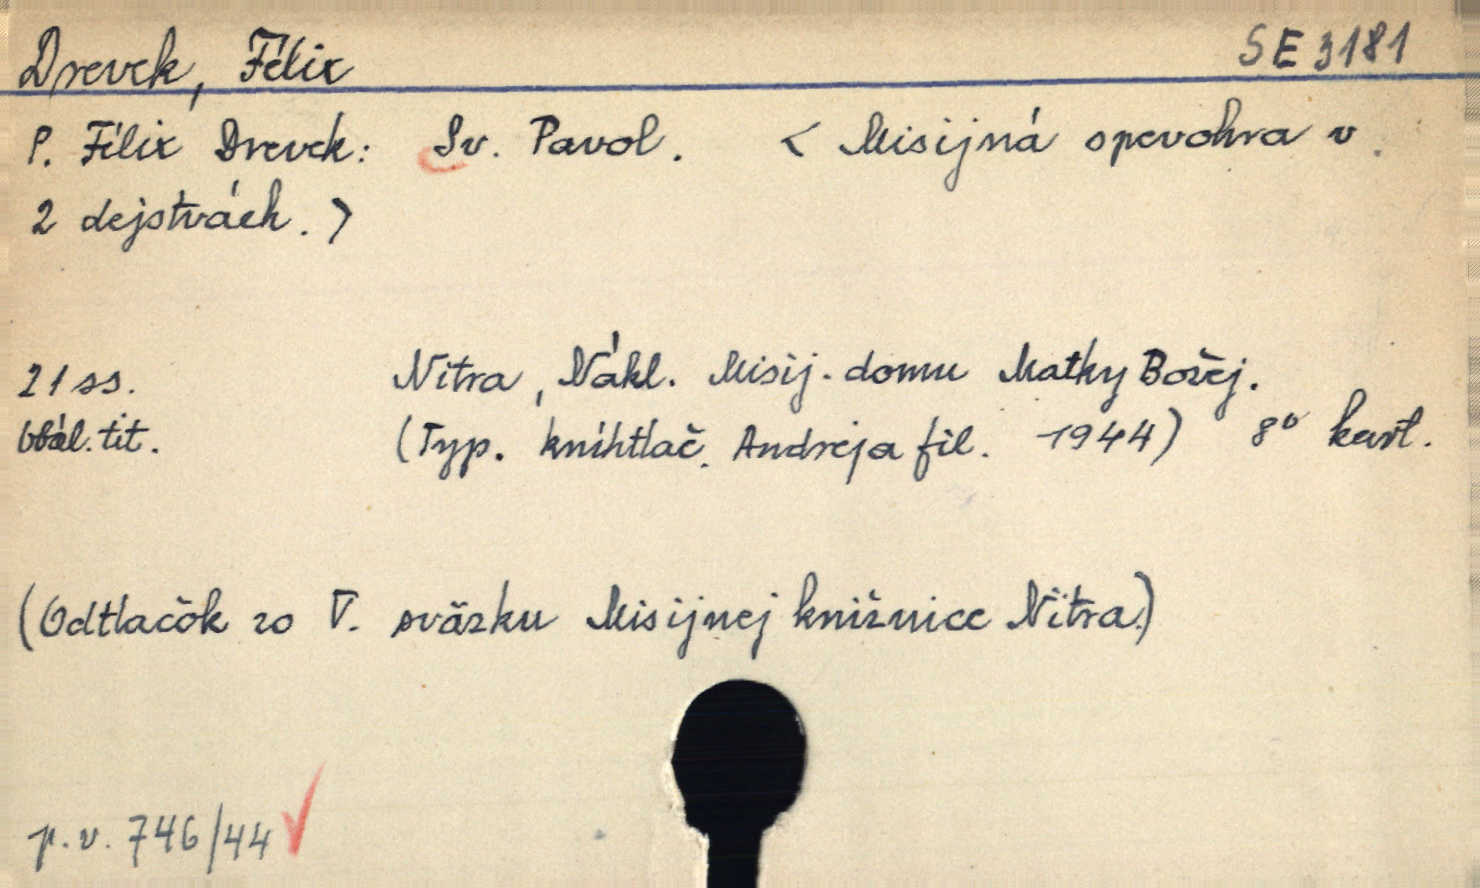 Drevek, Félix SE 3181
P. Félix Drevek: Sv. Pavol. < Misijná spevohra v
2 dejstvách. >
21 ss. Nitra, Nákl. Misij. domu Matky Božej.
Obál. tit. (Typ. kníhtlač. Andreja fil. 1944) 8° kart.
(Odtlačok zo V. sväzku Misijnej knižnice Nitra.)
p. v. 746/44